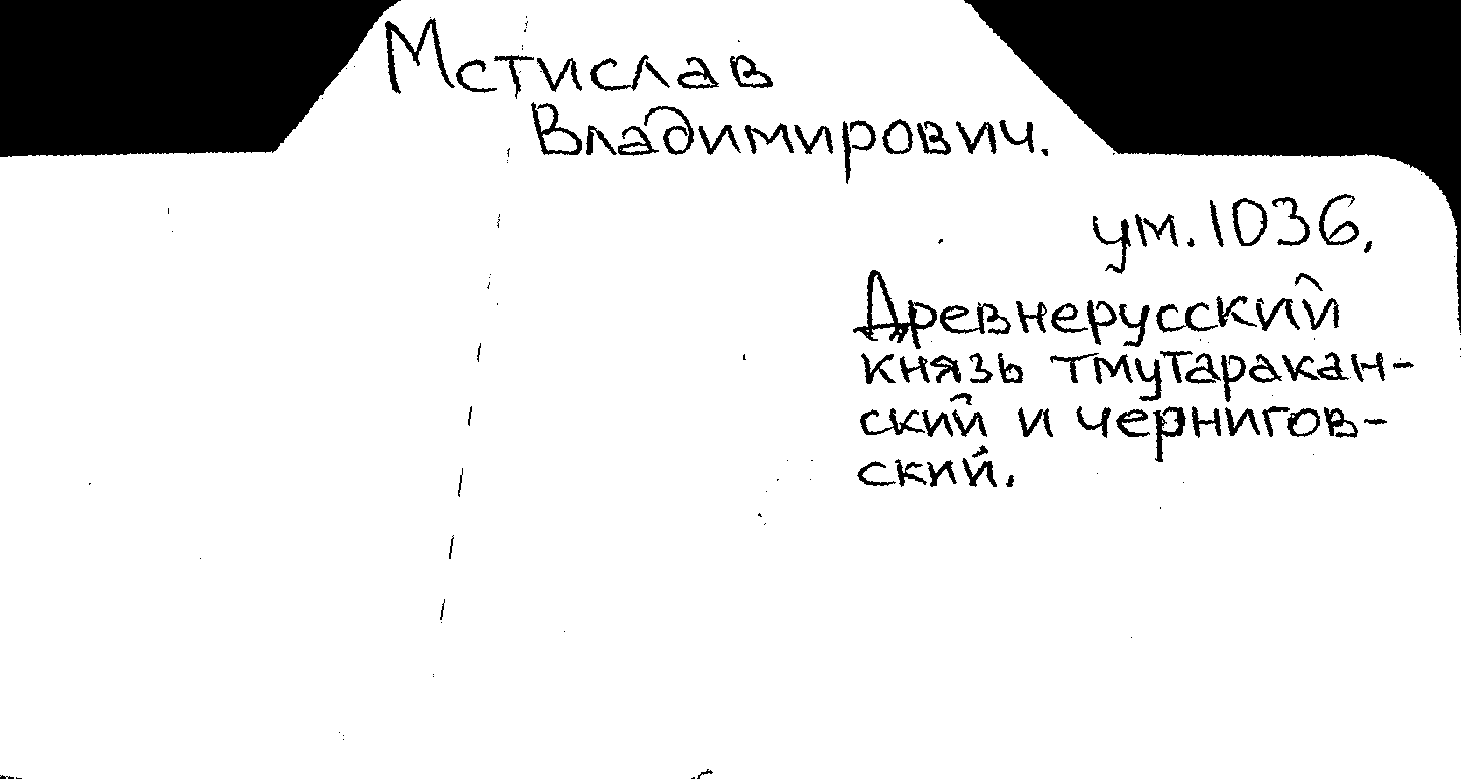 Мстислав
Владимирович.
ум. 1036.
Древнерусский
князь тмутаракан-
ский и чернигов-
ский.